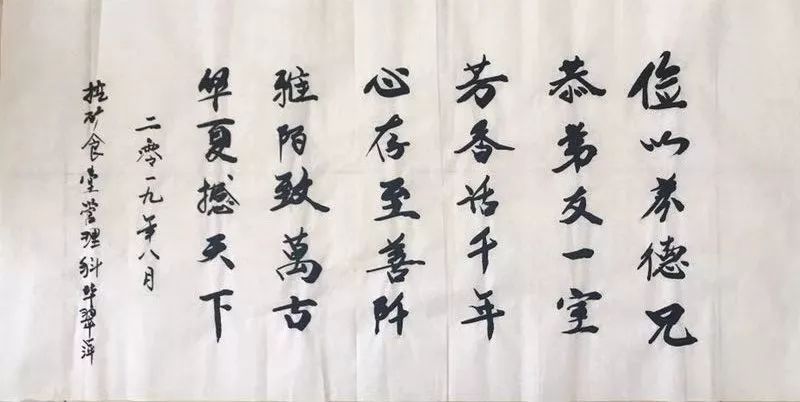 俭以养德兄
恭弟友一室
芳香话千年
心存至善阡
雅陌致萬古
华夏撼天下
二零一九年八月
矿食堂管理科毕翠萍